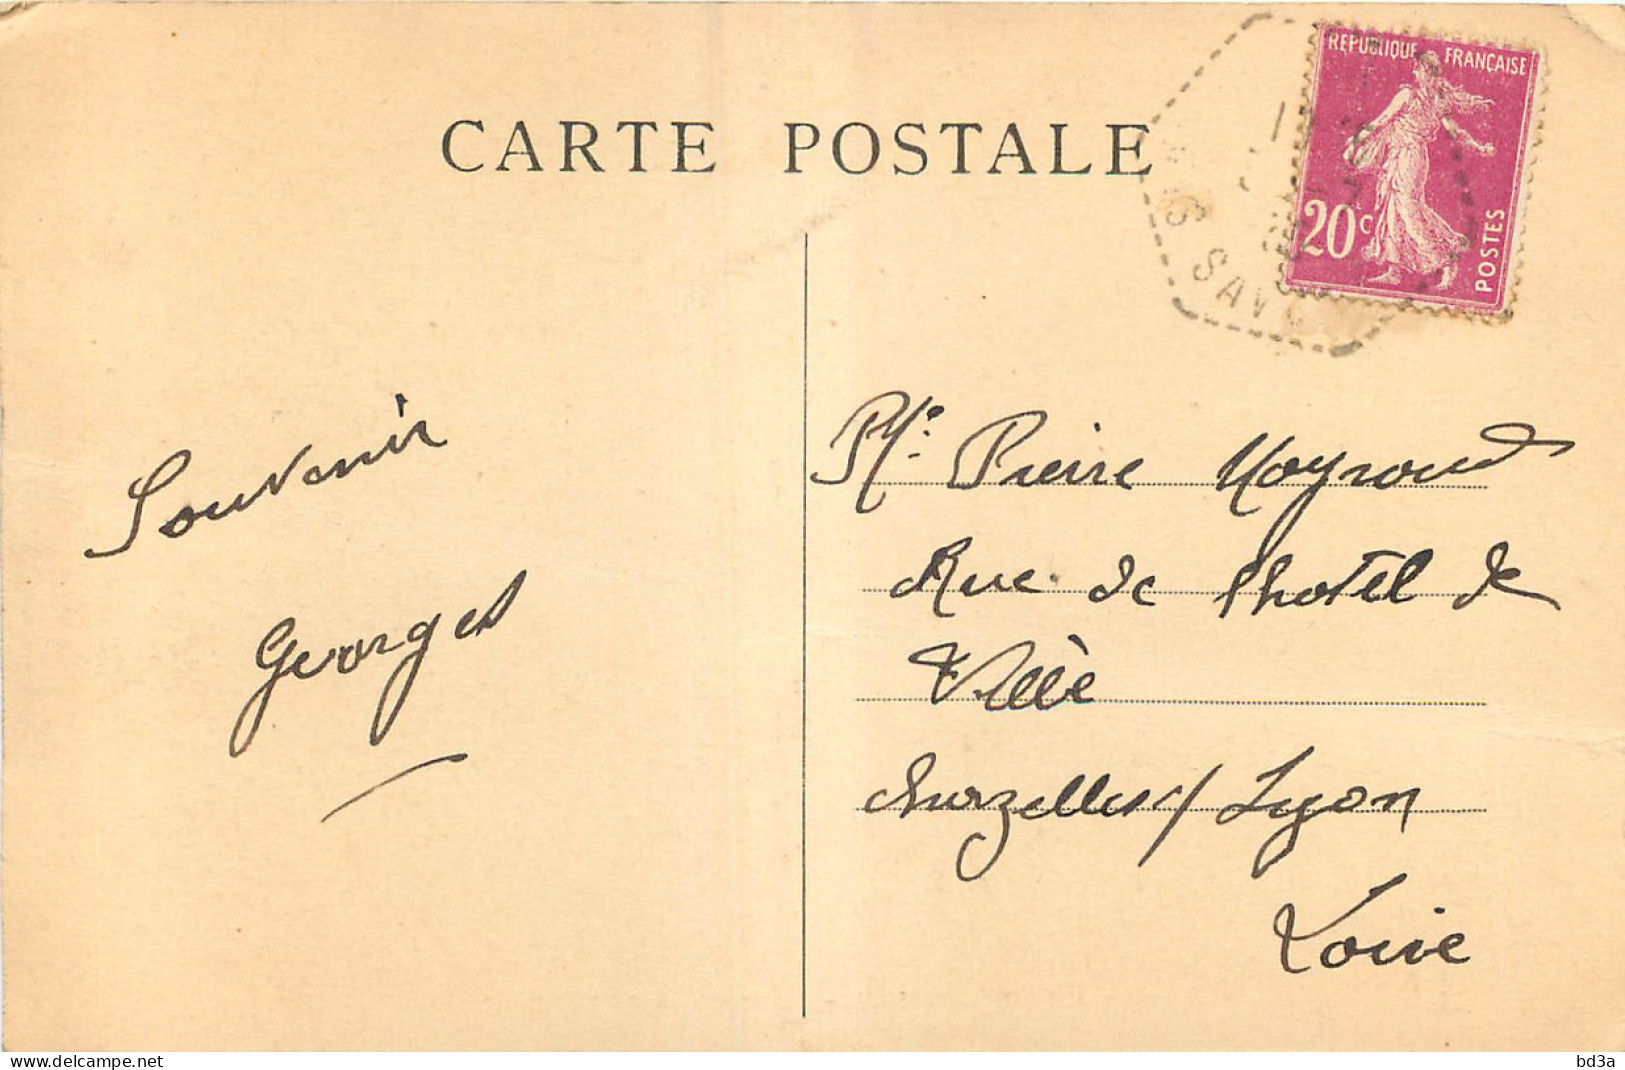 CARTE POSTALE
REPUBLIQUE FRANÇAISE
20c
POSTES
SAV
Souvenir
Georges
Mr. Pierre Moyroud
Rue de l'hotel de
Ville
Chazelles s/ Lyon
Loire
delcampe.net
bd3a